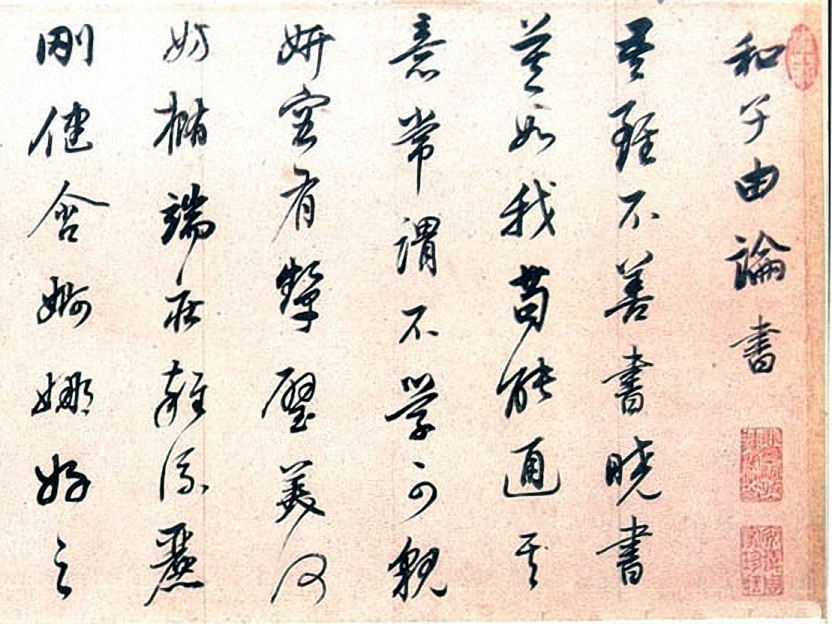 和子由論書
吾雖不善書曉書
莫如我苟能通其
意常謂不学可貌
妍容有顰璧美何
妨橢端莊雜流麗
剛健含婀娜好之